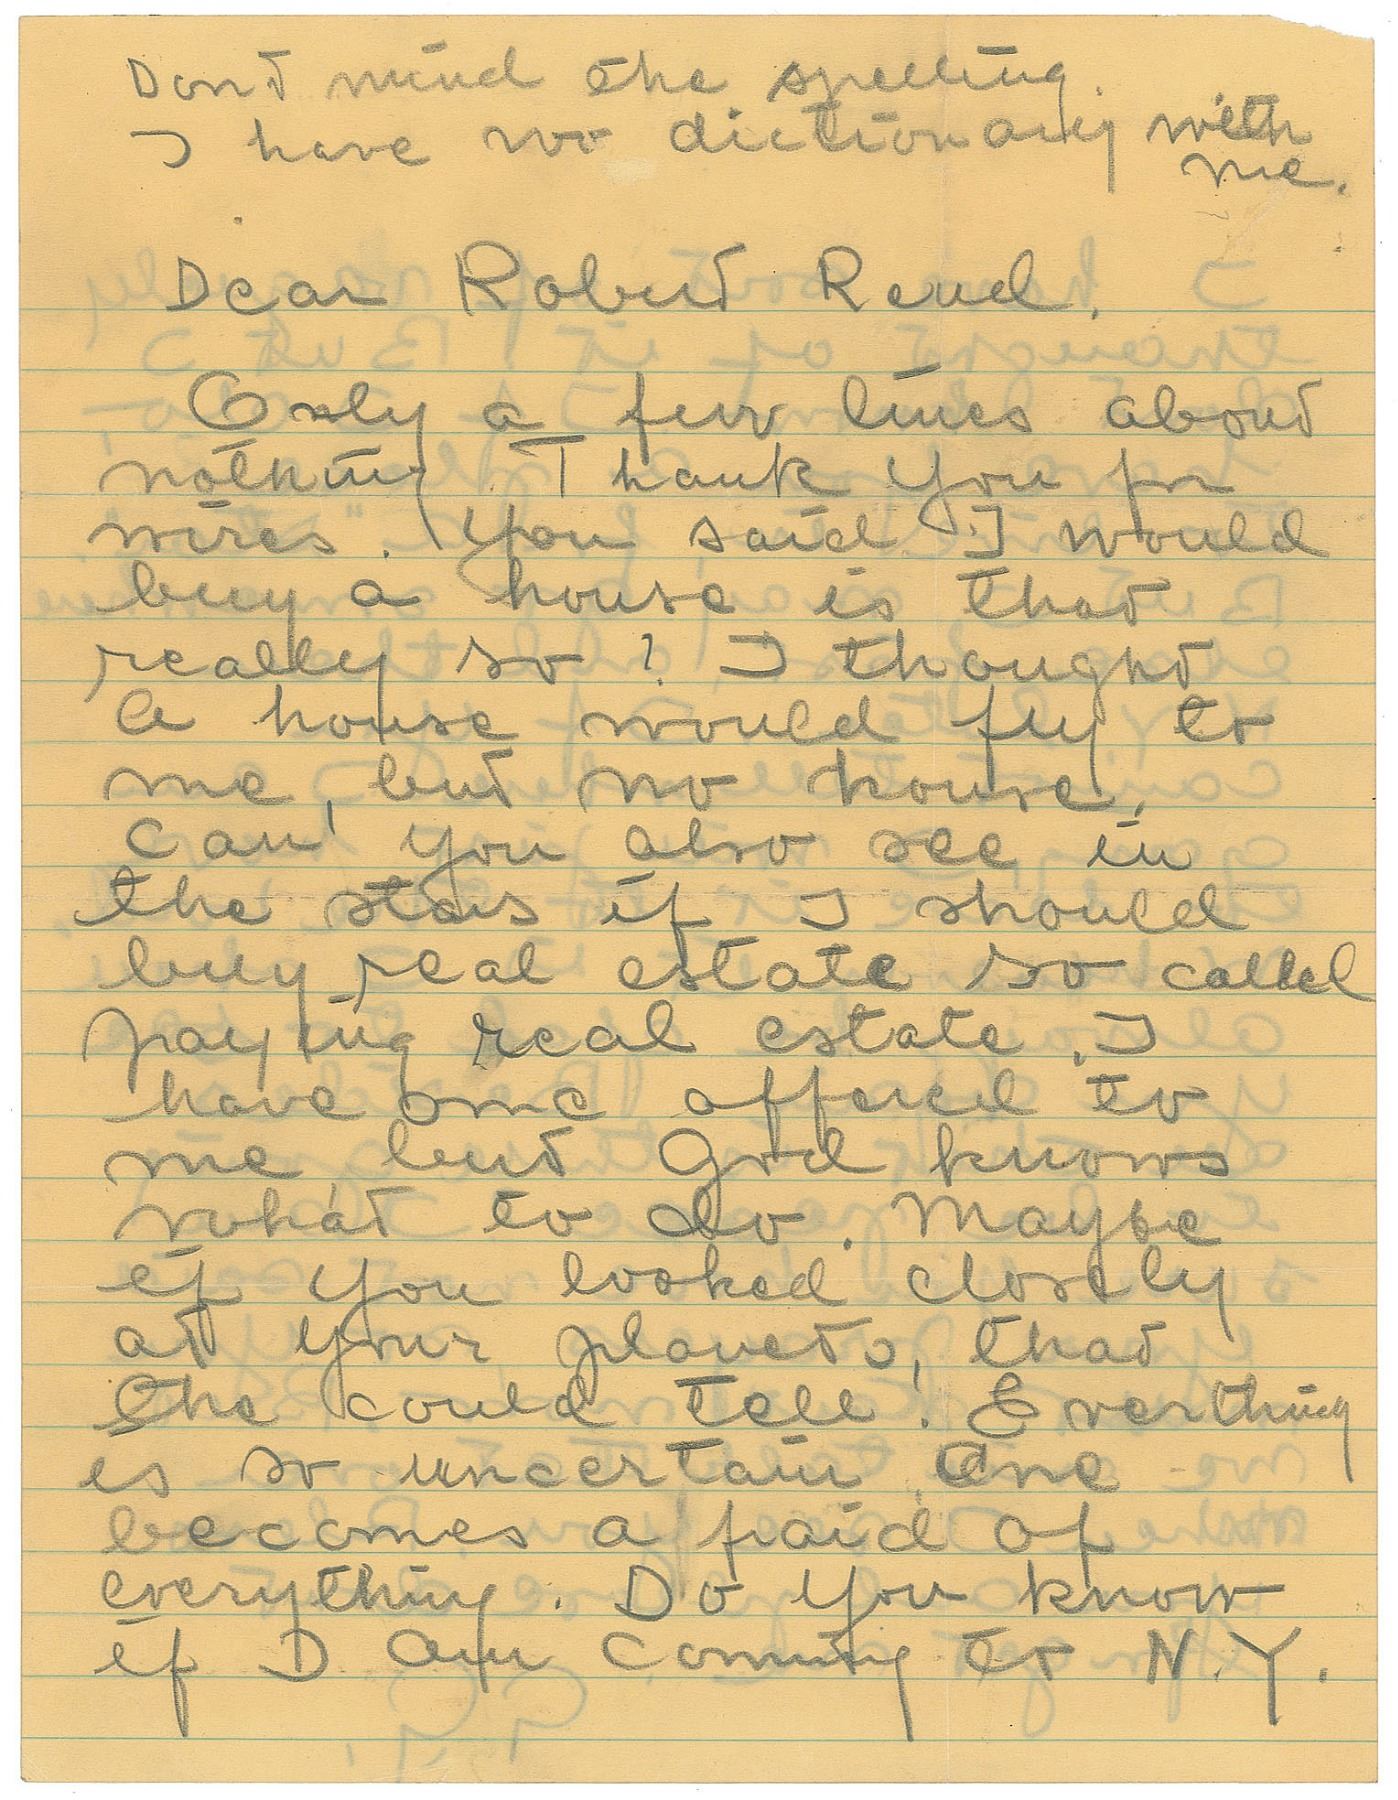 Dont mind the spelling.
I have no dictionary with
me.
Dear Robert Reud.
Only a few lines about
nothing. Thank you for
wires. You said I would
buy a house is that
really so? I thought
a house would fly to
me, but no house.
Can you also see in
the stars if I should
buy real estate so called
paying real estate. I
have some offered to
me but God knows
what to do. Maybe
if you looked closely
at your planets, that
the could tell! Everthing
is so uncertain One
becomes a fraid of
everything. Do you know
if I am coming to N.Y.